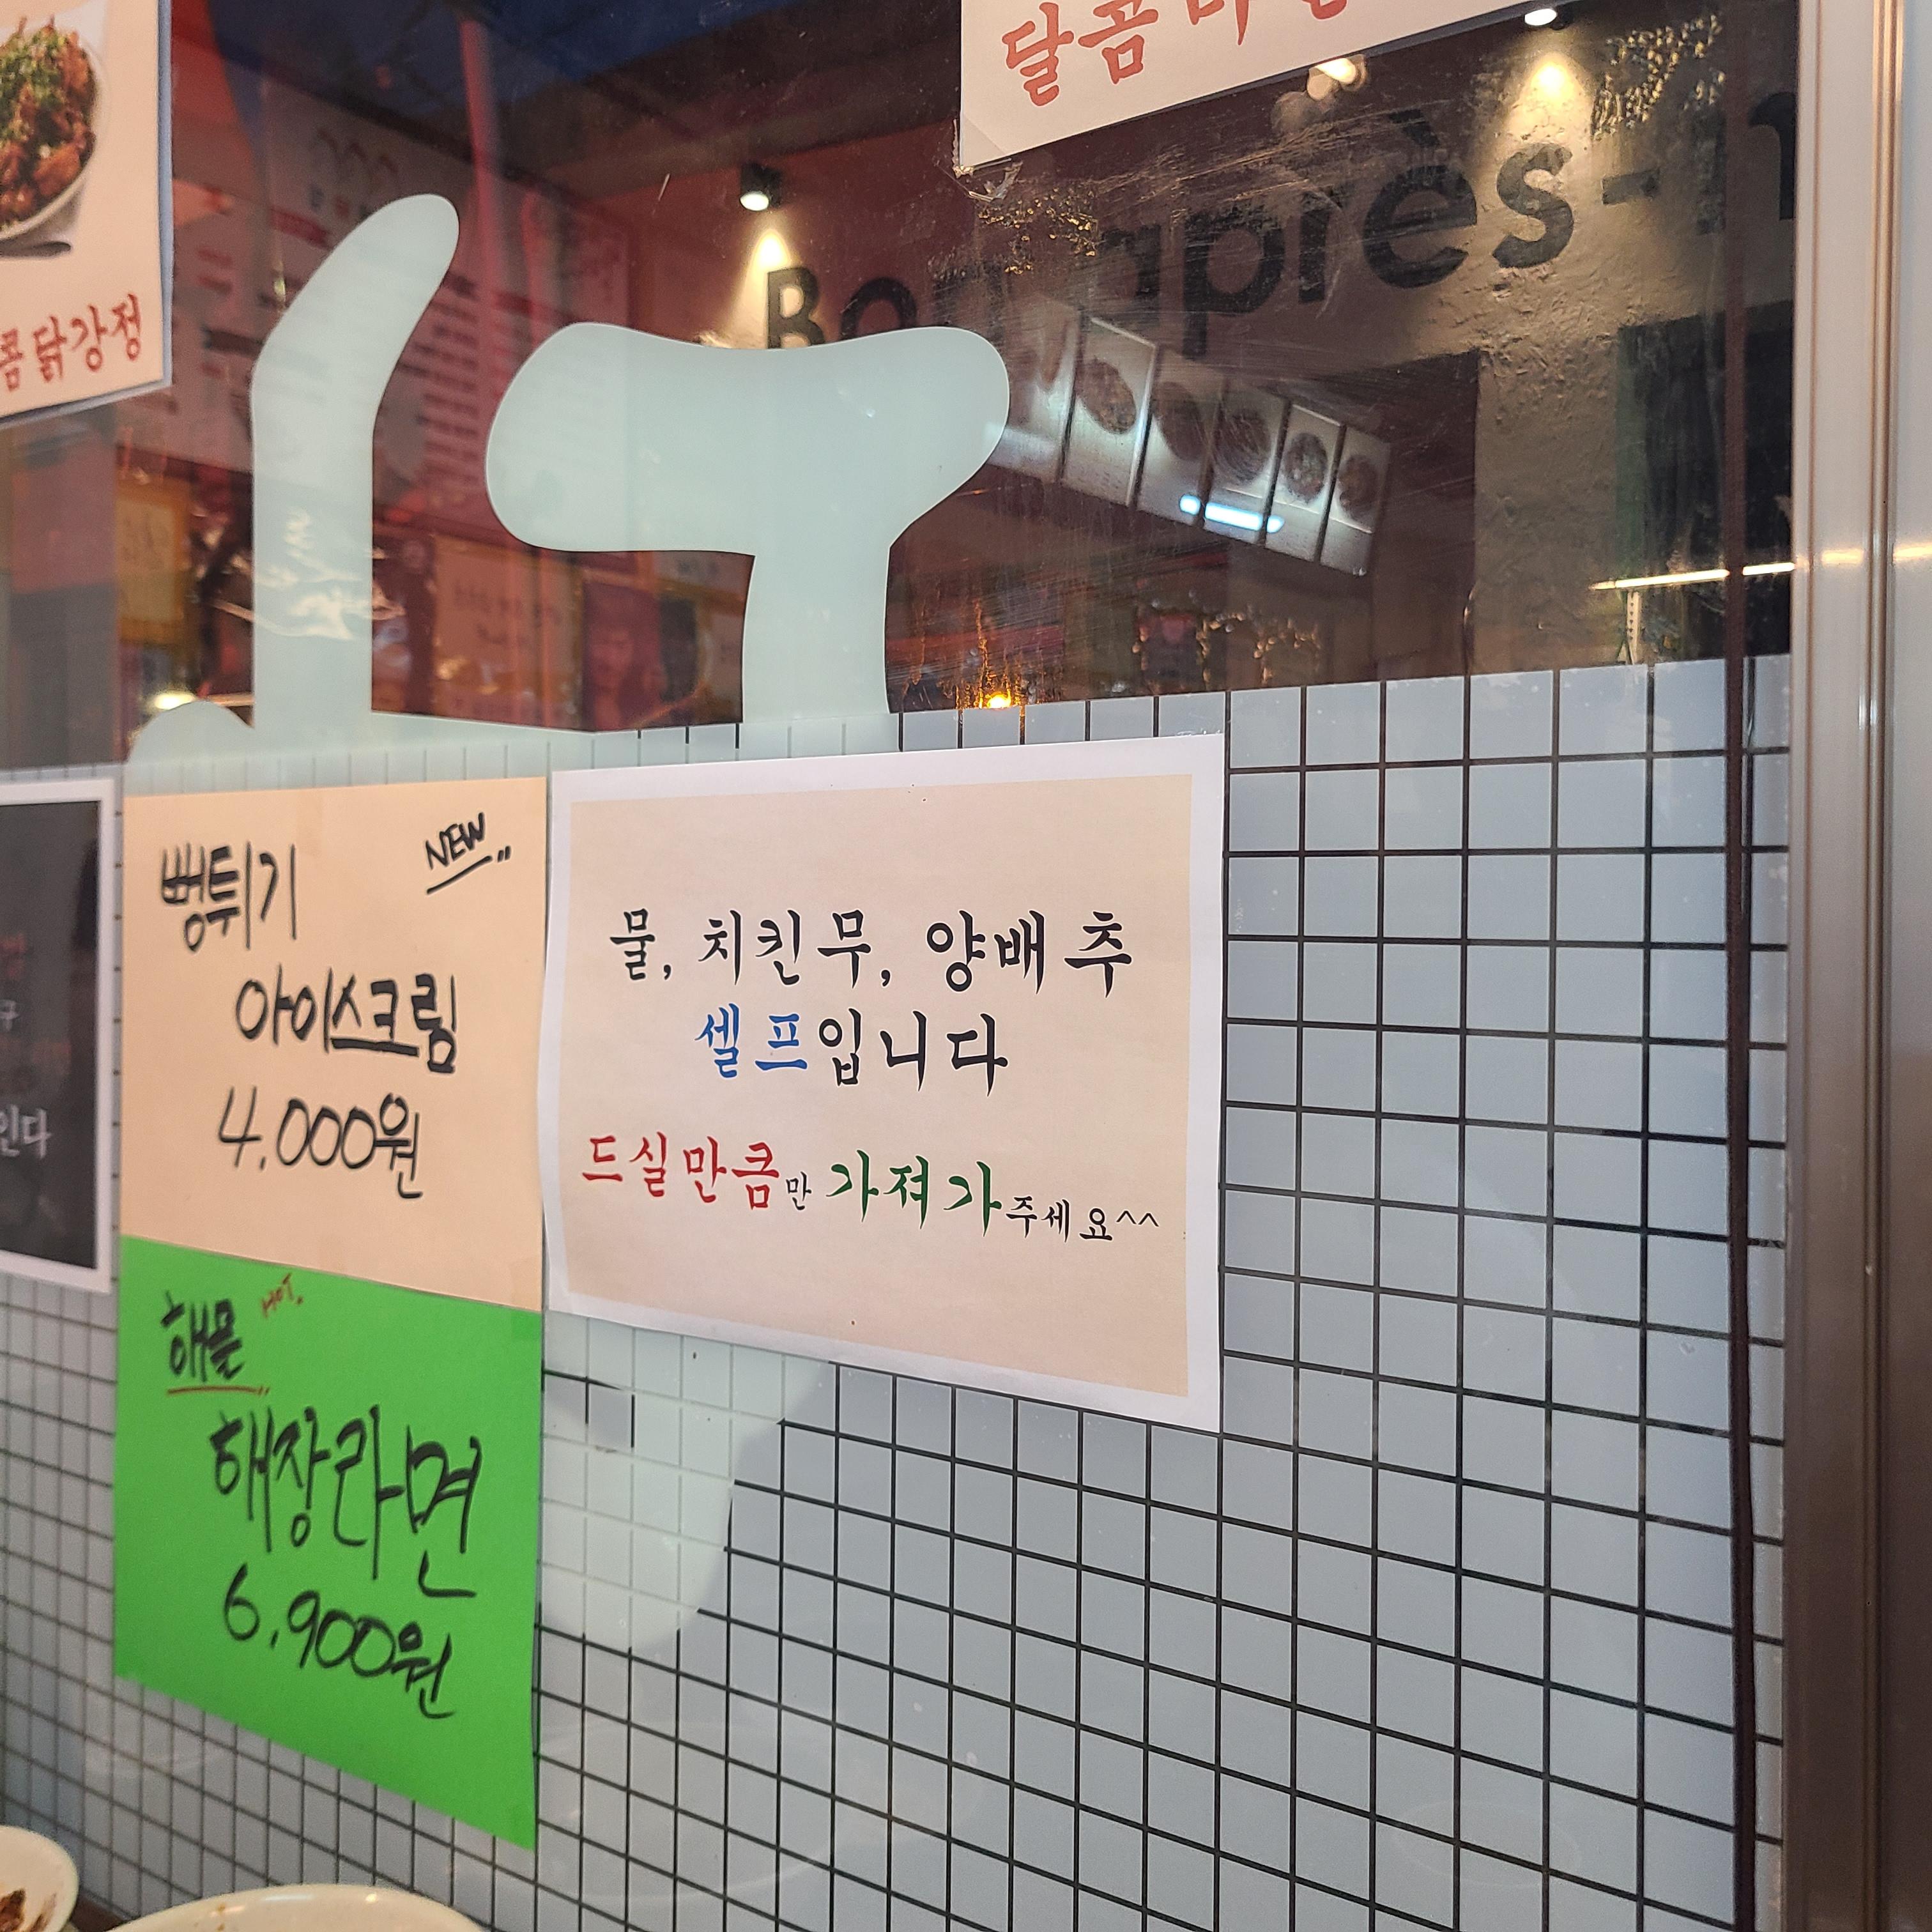 달콤
콤닭강정
Bon après-
뻥튀기
NEW
아이스크림
4,000원
물, 치킨무, 양배추
셀프입니다
드실만큼만 가져가주세요^^
해물
HOT.
해장라면
6,900원
인다